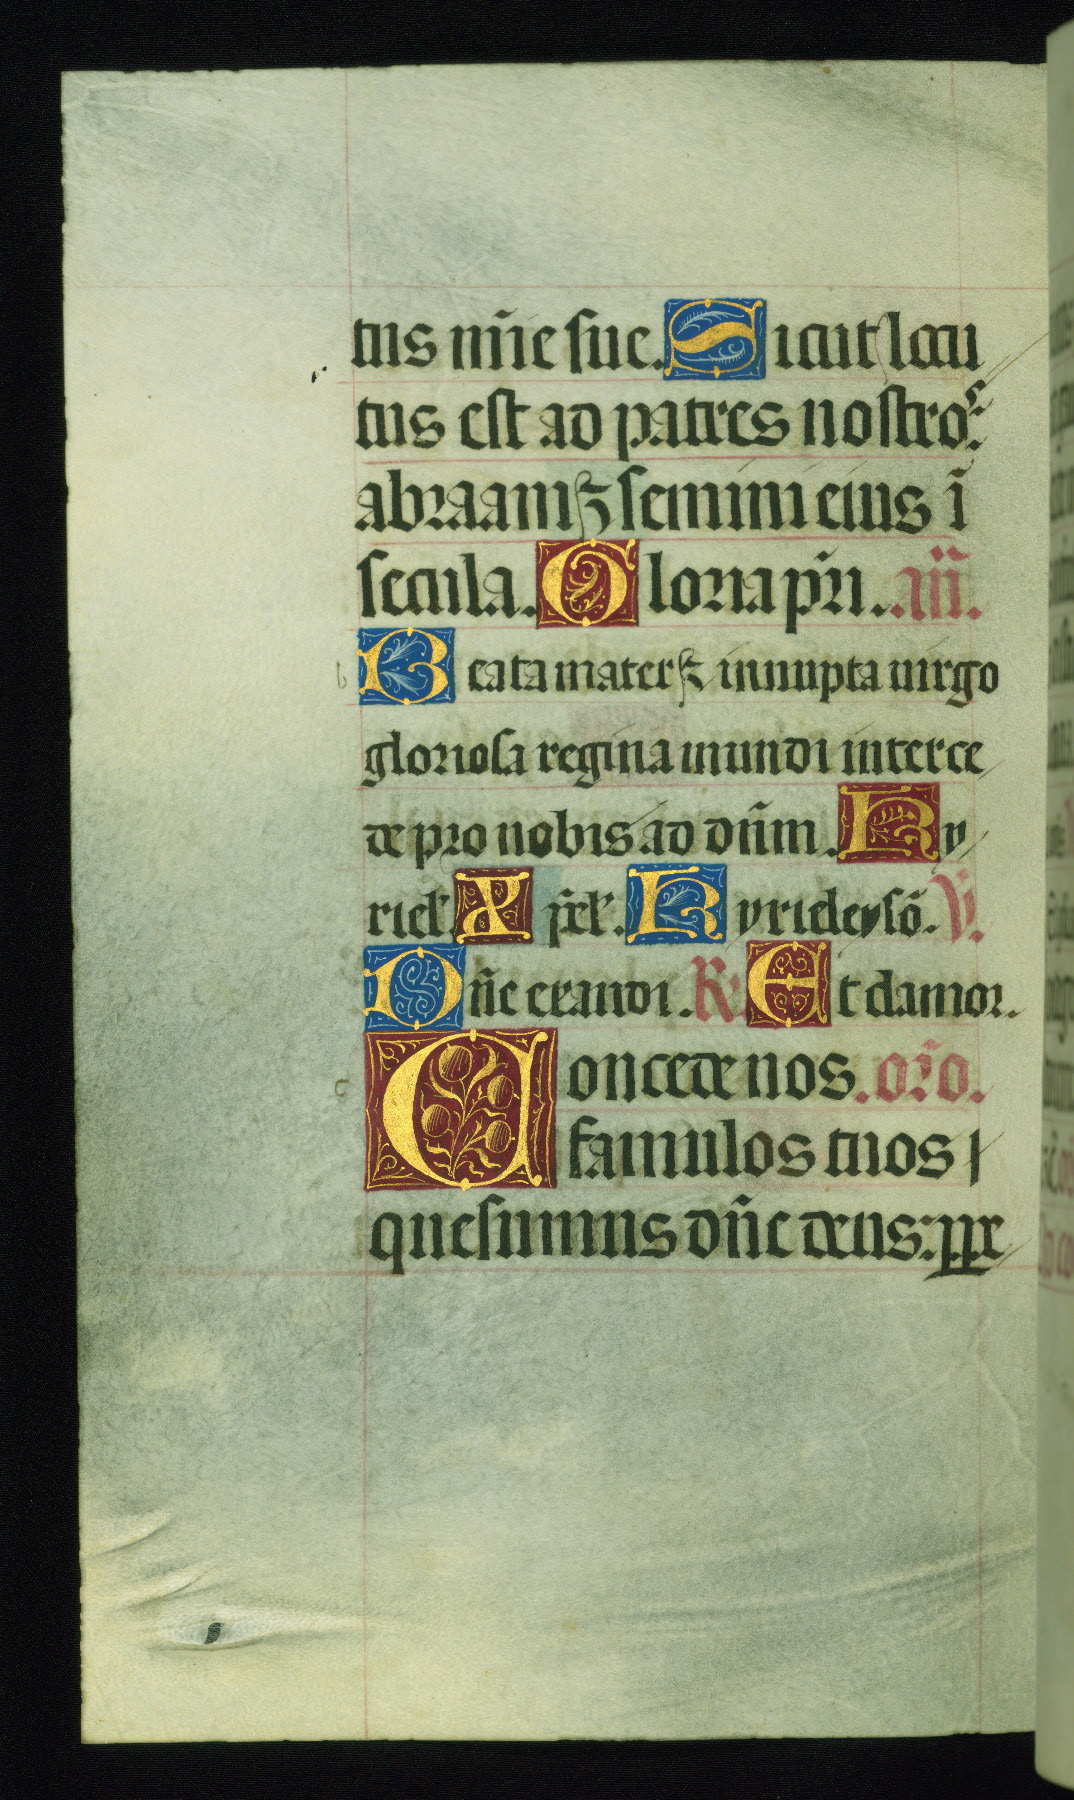 tus mīe sue. Sicut locu
tus est ad patres nostros:
abraam ⁊ semini eius ī
secula. Gloria pr̄i. .añ.
b Beata mater ⁊ innupta uirgo
gloriosa regina mundi interce
de pro nobis ad dn̄m. Ky
riel'. X p̄el'. Kyrieleysō. V̄.
Dn̄e exaudi. R̄ Et clamor.
c Concede nos. or̄o.
famulos tuos |
quesumus dn̄e deus: ꝑpe